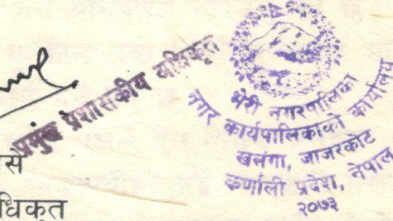 प्रमुख प्रशासकीय अधिकृत
भेरी नगरपालिका
नगर कार्यपालिकाको कार्यालय
खलंगा, जाजरकोट
कर्णाली प्रदेश, नेपाल
२०७३
धिकृत